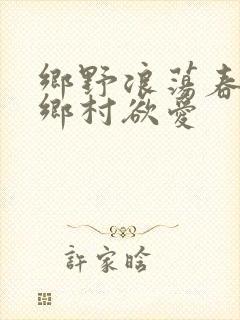 鄉野浪蕩春
鄉村欲愛
許家晗